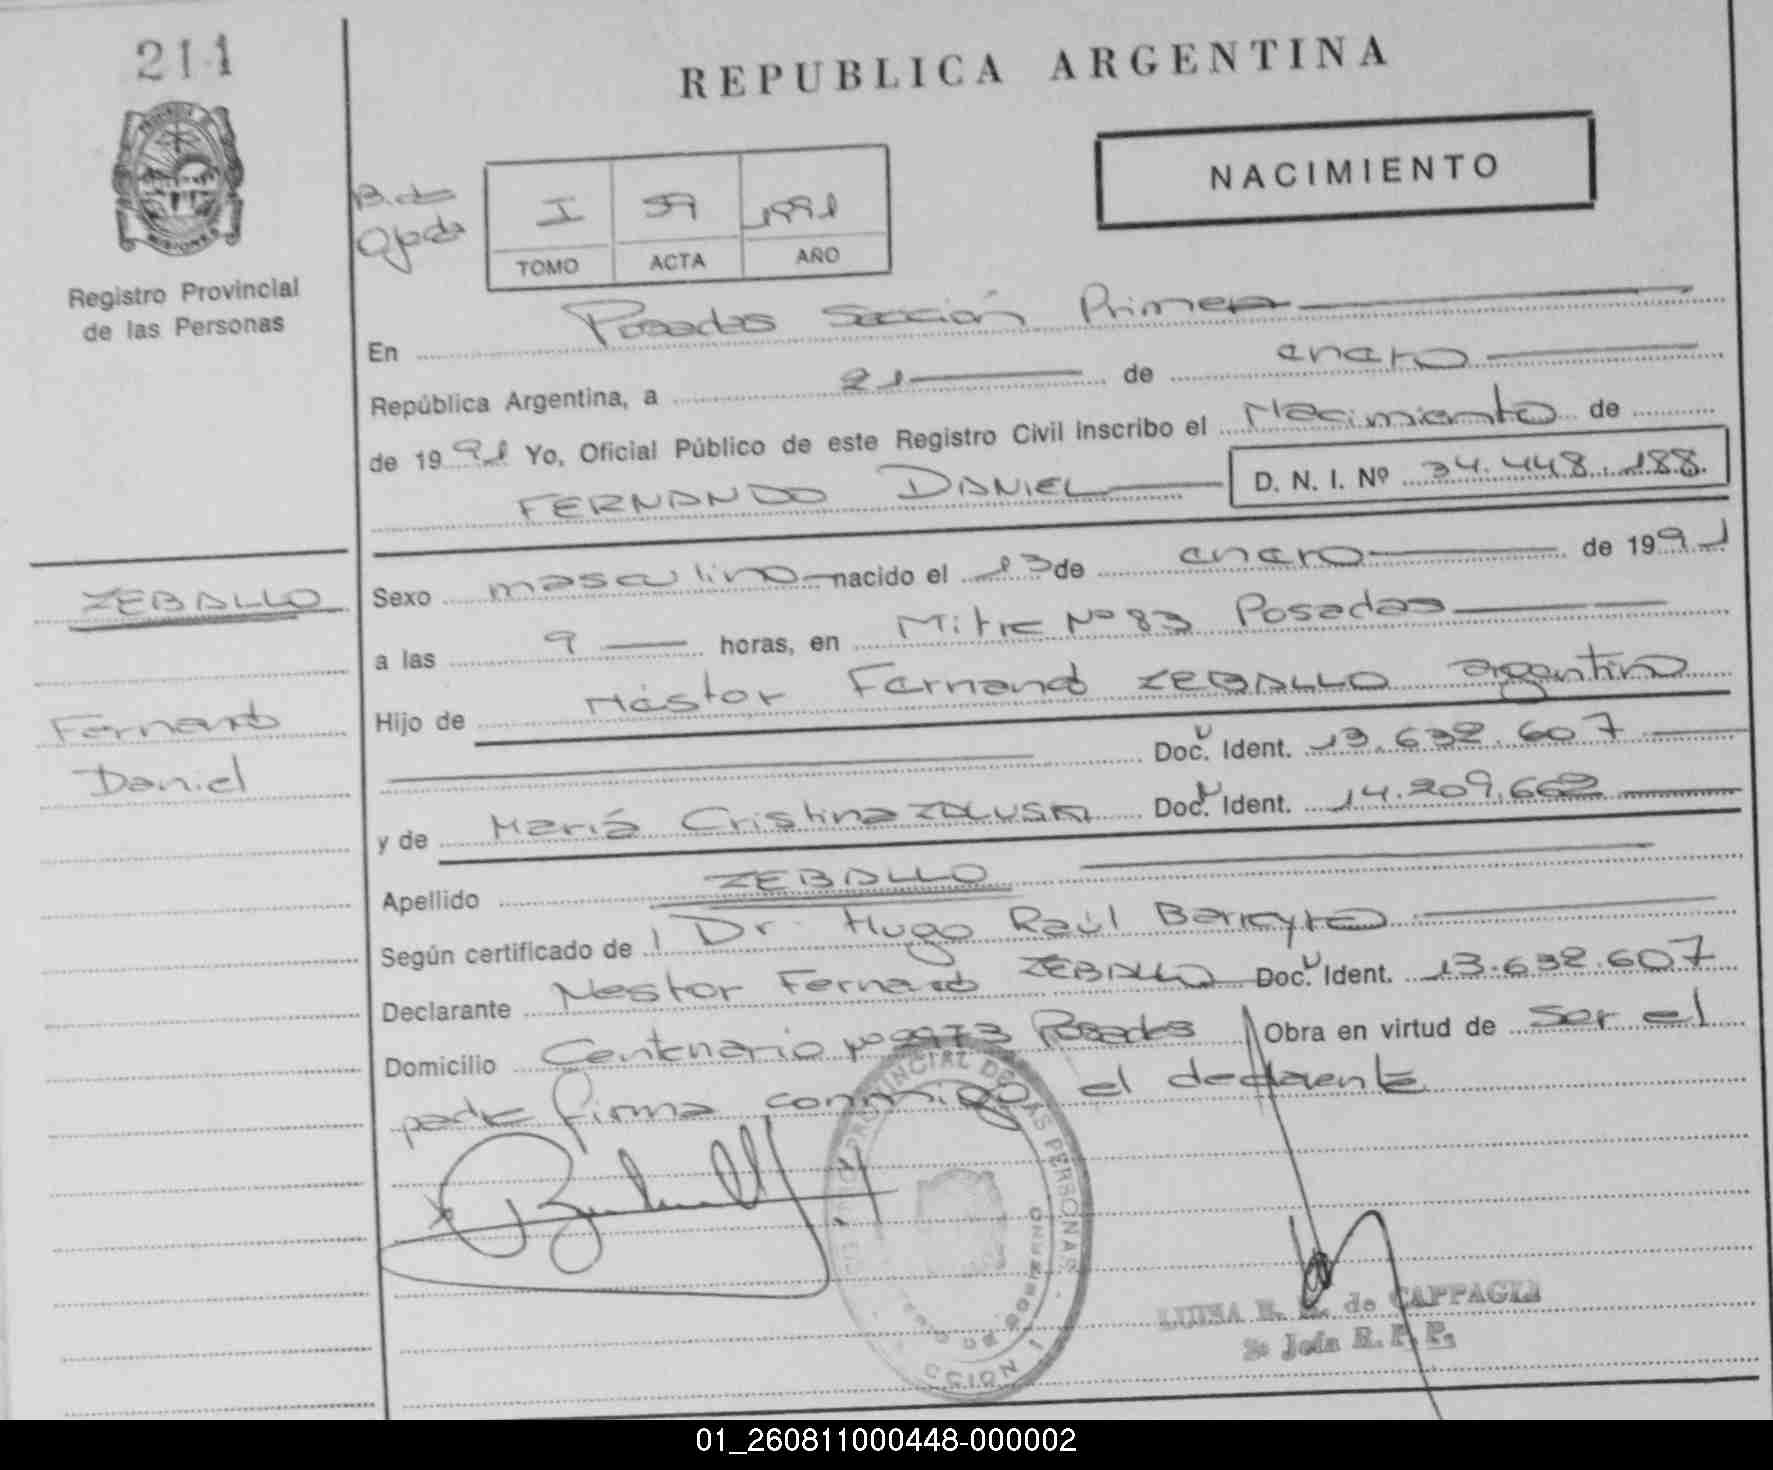 211
REPUBLICA ARGENTINA
PROVINCIA MISIONES
NACIMIENTO
B. de
I 59 1991
TOMO ACTA AÑO
Registro Provincial
de las Personas
En Posadas Sección Primera
República Argentina, a 21 de enero
de 1991 Yo, Oficial Público de este Registro Civil inscribo el Nacimiento de
FERNANDO DANIEL D. N. I. Nº 34.448.188
ZEBALLO
Fernando
Daniel
Sexo masculino nacido el 13 de enero de 1991
a las 9 horas, en Mitre Nº 83 Posadas
Hijo de Néstor Fernando ZEBALLO argentino
Doc. U Ident. 13.632.607
y de María Cristina Doc. U Ident. 14.209.662
Apellido ZEBALLO
Según certificado de Dr. Hugo Raúl
Declarante Nestor Fernando ZEBALLO Doc. U Ident. 13.632.607
Domicilio Centenario Nº Posadas Obra en virtud de ser el
padre firma conmigo el declarante
PROVINCIAL DE LAS PERSONAS
DE GOBIERNO
LUISA de CAPPAGLI
2º Jefa R. P. P.
01_260811000448-000002